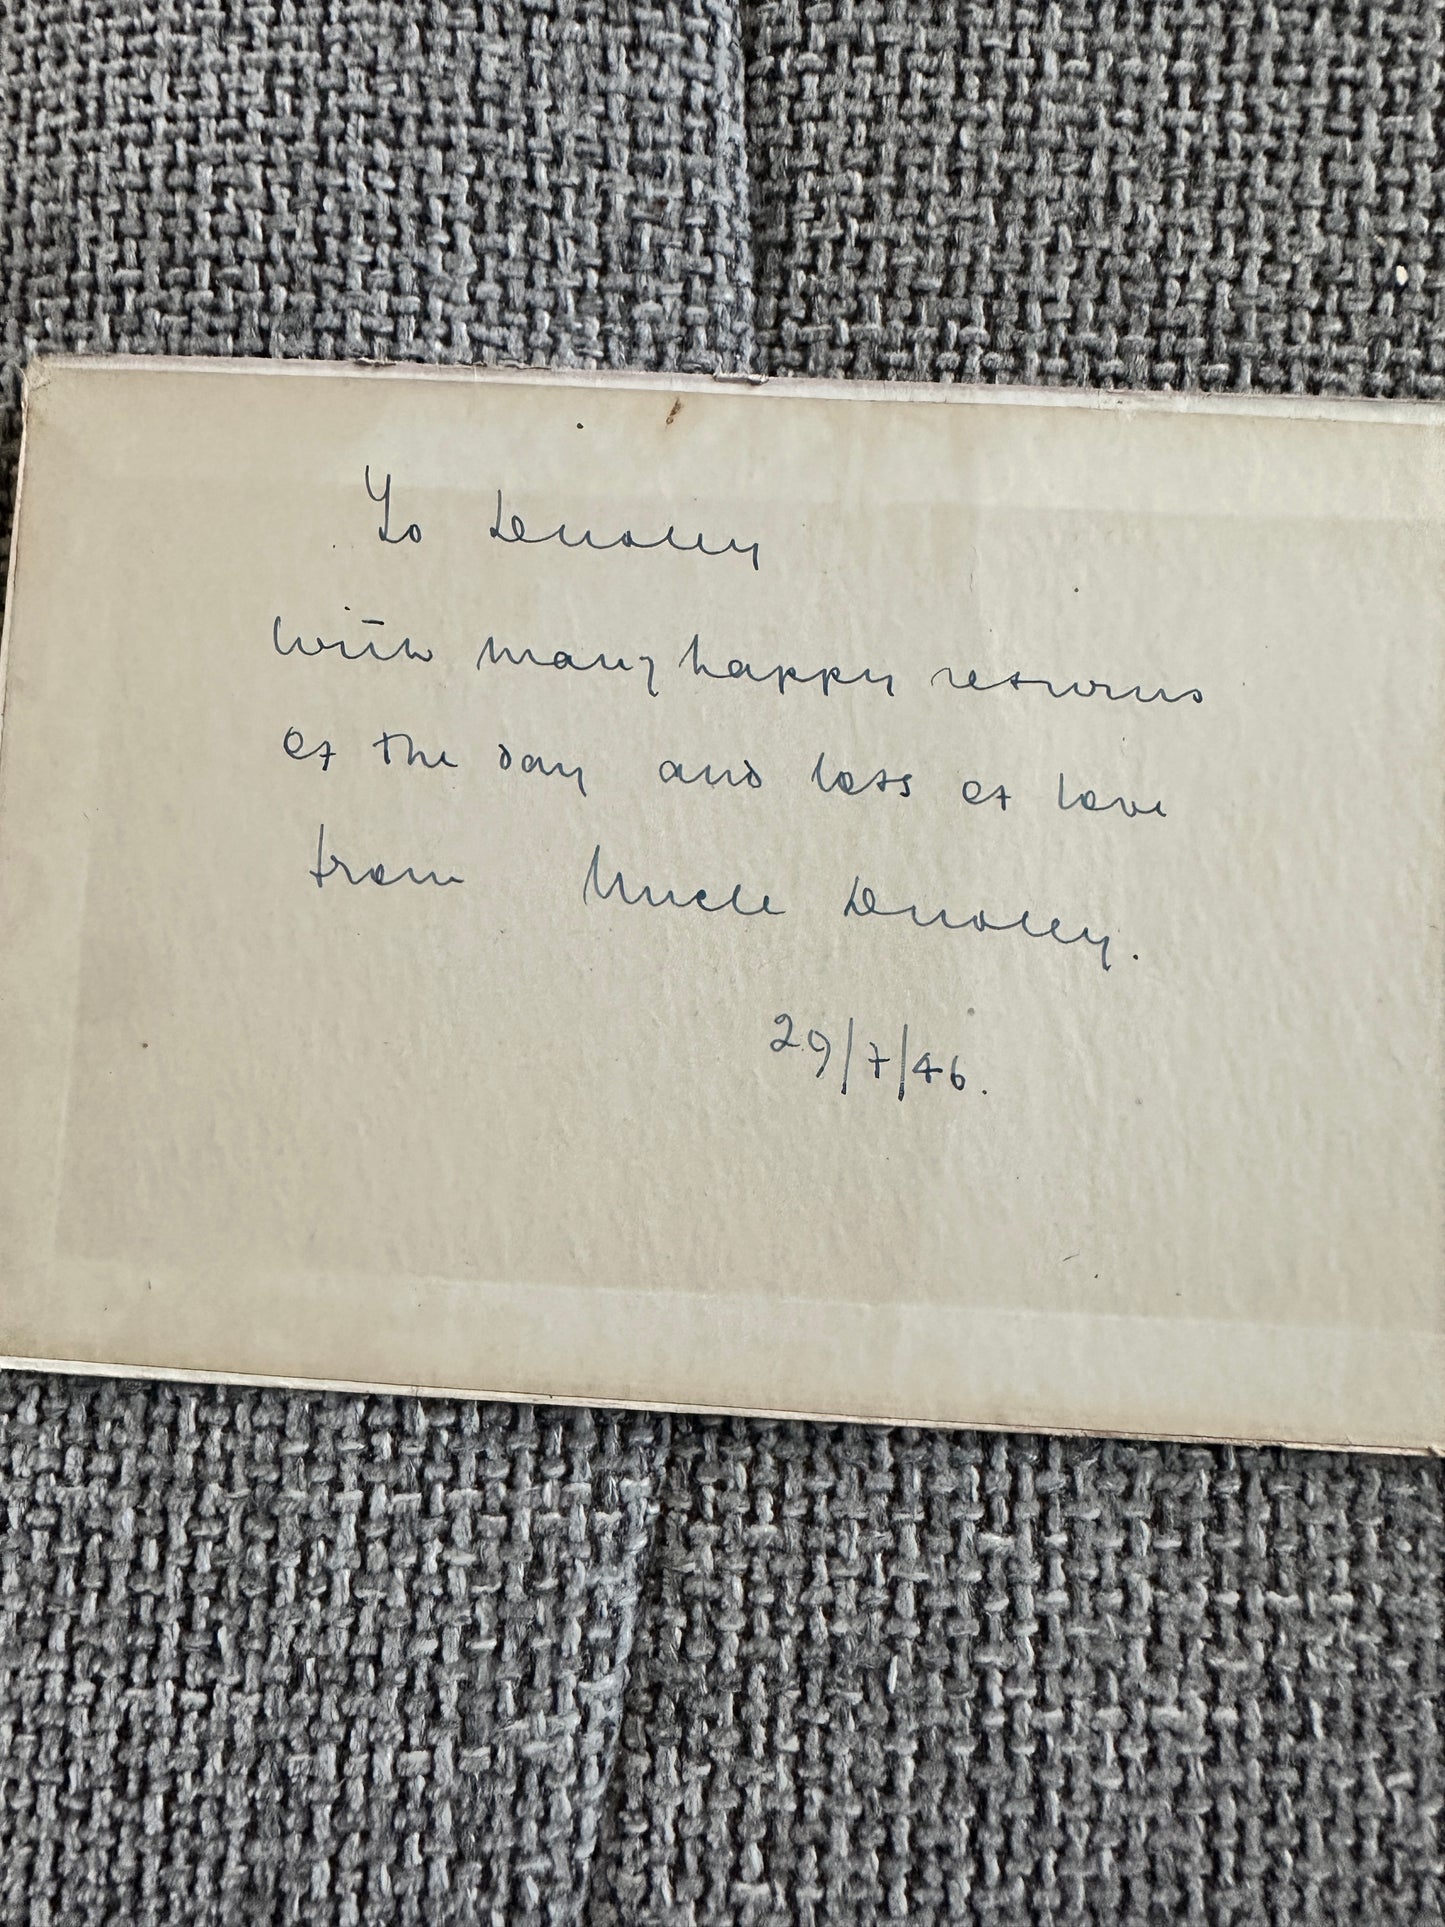 To Dudley
with many happy returns
of the day and lots of love
from Uncle Dudley.
29/7/46.